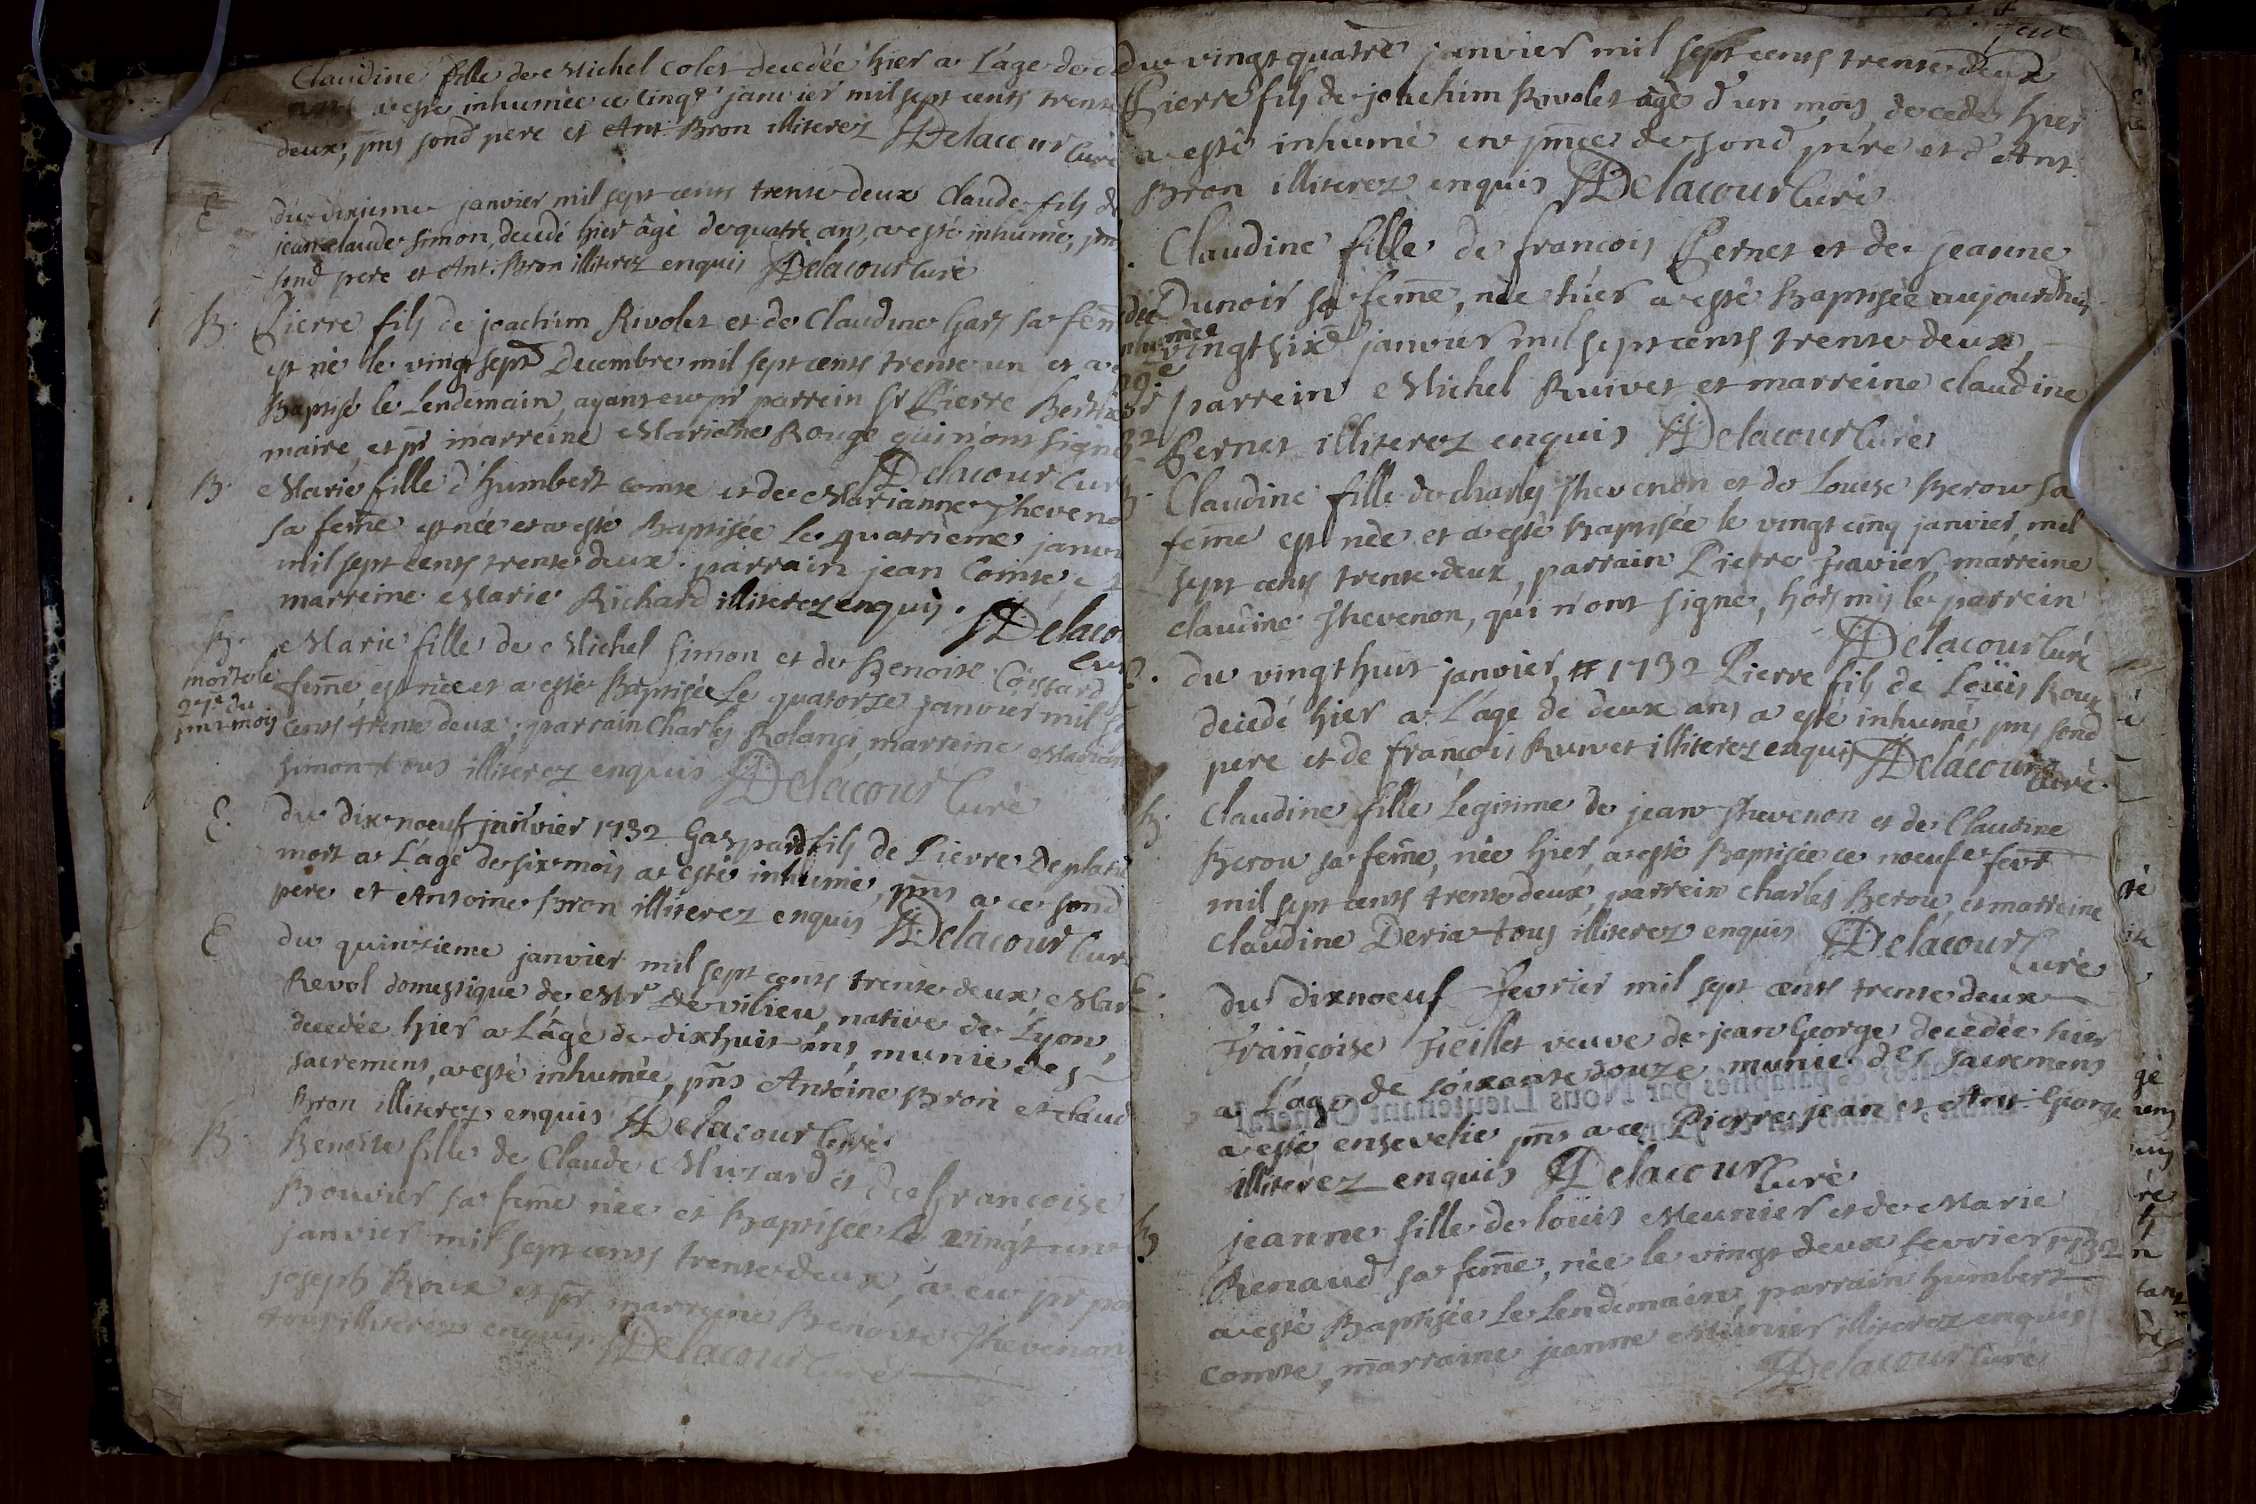 Claudine fille de Michel Colet decedée hier a L'age de
a esté inhumée ce cinq.e janvier mil sept cents trente
deux, pns sond pere et Ant Bron illiterez Delacour Curé
E du dixieme janvier mil sept cents trente deux Claude fils de
jean claude Simon, decedé hier âgé de quatre ans, a esté inhumé, pns
sond pere et Ant. Bron illiterez enquis Delacour Curé
B. Pierre fils de joachim Rivolet et de Claudine Gars sa fem̄e
est né le vingt sept Decembre mil sept cents trente un et a
Baptisé le Lendemain, ayant eu pr parrein Sr Pierre
maire, et pr marreine Mariethe Rouge qui n'ont signé
Delacour Curé
B. Marie fille d'humbert comte et de Marianne Theveno
sa fem̄e est née et a esté Baptisée Le quatrième janvier
mil sept cents trente deux. parrain jean Comte, et
marreine Marie Richard illiterez enquis. Delacour
Curé
B. Marie fille de Michel Simon et de Benoite Coistard
morte le
29e du
pnt mois
fem̄e, est née et a esté Baptisée Le quatorze janvier mil
cents trente deux, parrain Charles Roland, marreine Marian
Simon tous illiterez enquis Delacour Curé
E. du dix noeuf janvier 1732 Gaspard fils de Pierre Deplatie
mort a L'age de six mois a esté inhumé, pns a ce sond
pere et Antoine Bron illiterez enquis Delacour Curé
E du quinzieme janvier mil sept cents trente deux, Mar
Revol domestique de Mr De vilieu, native de Lyon,
decedée hier a L'âge de dixhuit ans, munie des
sacremens, a esté inhumée, pns Antoine Bron et Claud
Bron illiterez enquis Delacour Curé
B. Benoite fille de Claude Muzard et de françoise
Bouvier sa fem̄e née et Baptisée Le vingt un
janvier mil sept cents trente deux, a eu pr par
joseph Roux et pr marreine Benoite Thevenan
tous illiterez enquis Delacour Curé
du vingt quatre janvier mil sept cents trente deux
Pierre fils de joachim Rivolet âgé d'un mois decedé hier
a esté inhumé en pn̄ce de sond pére et d'Ant.
Bron illiterez enquis Delacour Curé
Claudine fille de francois Pernet et de jeanne
Dunoir sa fem̄e, née hier a esté Baptisée aujourdhuy
vingt six janvier mil sept cents trente deux,
parrein Michel Ruivet et marreine claudine
Pernet illiterez enquis Delacour Curé
B. Claudine fille de charles Thevenon et de Louise Berou sa
fem̄e est née et a esté Baptisée le vingt cinq janvier, mil
sept cents trente deux, parrain Pierre Favier, marreine
claudine Thevenon, qui n'ont signé, hors mis le parrein
Delacour Curé
E. du vingt huit janvier, 1732 Pierre fils de Loüis Roux
decedé hier a L'age de deux ans a esté inhumé, pns sond
pere et de françois Ruivet illiterez enquis Delacour
Curé.
B. Claudine fille Legitime de jean Thevenon et de Claudine
Berou sa fem̄e, née hier, a esté Baptisée ce noeufe fevr
mil sept cents trente deux, parrein Charles Berou, et marreine
Claudine Deria tous illiterez enquis Delacour
Curé
E. du dixnoeuf Fevrier mil sept cents trente deux
Françoise Feillet veuve de jean George decedée hier
a L'age de soixante douze munie des sacremens
a esté ensevelie pns a ce Pierre, jean et Ant. George
illiterez enquis Delacour Curé
B jeanne fille de loüis Meunier et de Marie
Renaud sa fem̄e, née le vingt deux fevrier 1732
a esté Baptisée Le Lendemain, parrain humbert
Comte, marraine jeanne Meunier illiterez enquis
Delacour Curé